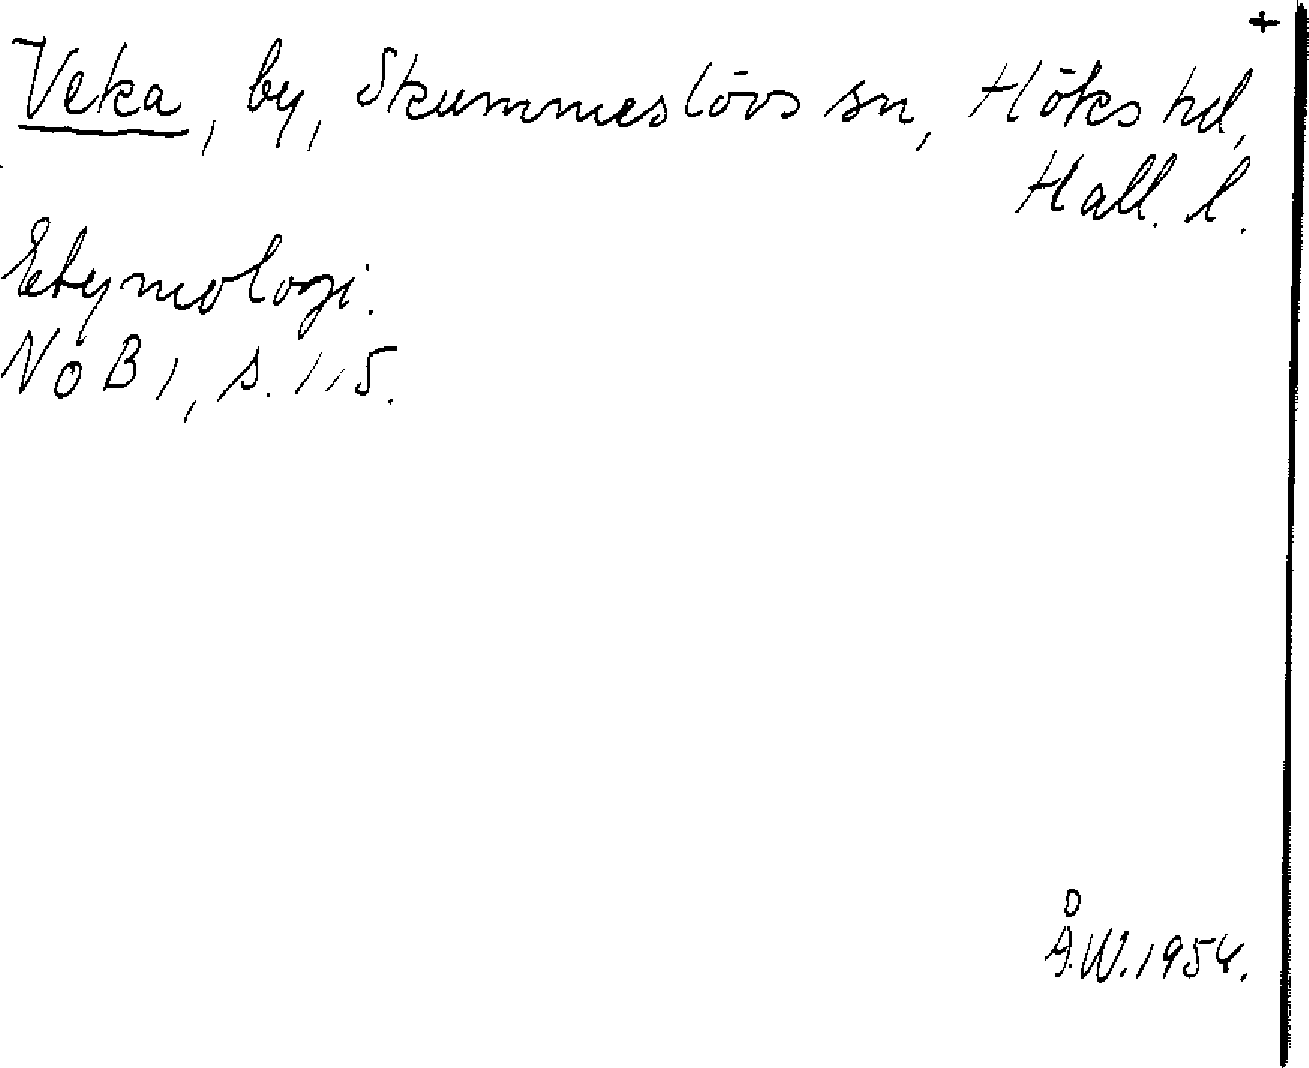 +
Veka, by, Skummeslövs sn, Höks hd,
Hall. l.
Etymologi.
NoB 1, s. 115.
Å.W. 1954.